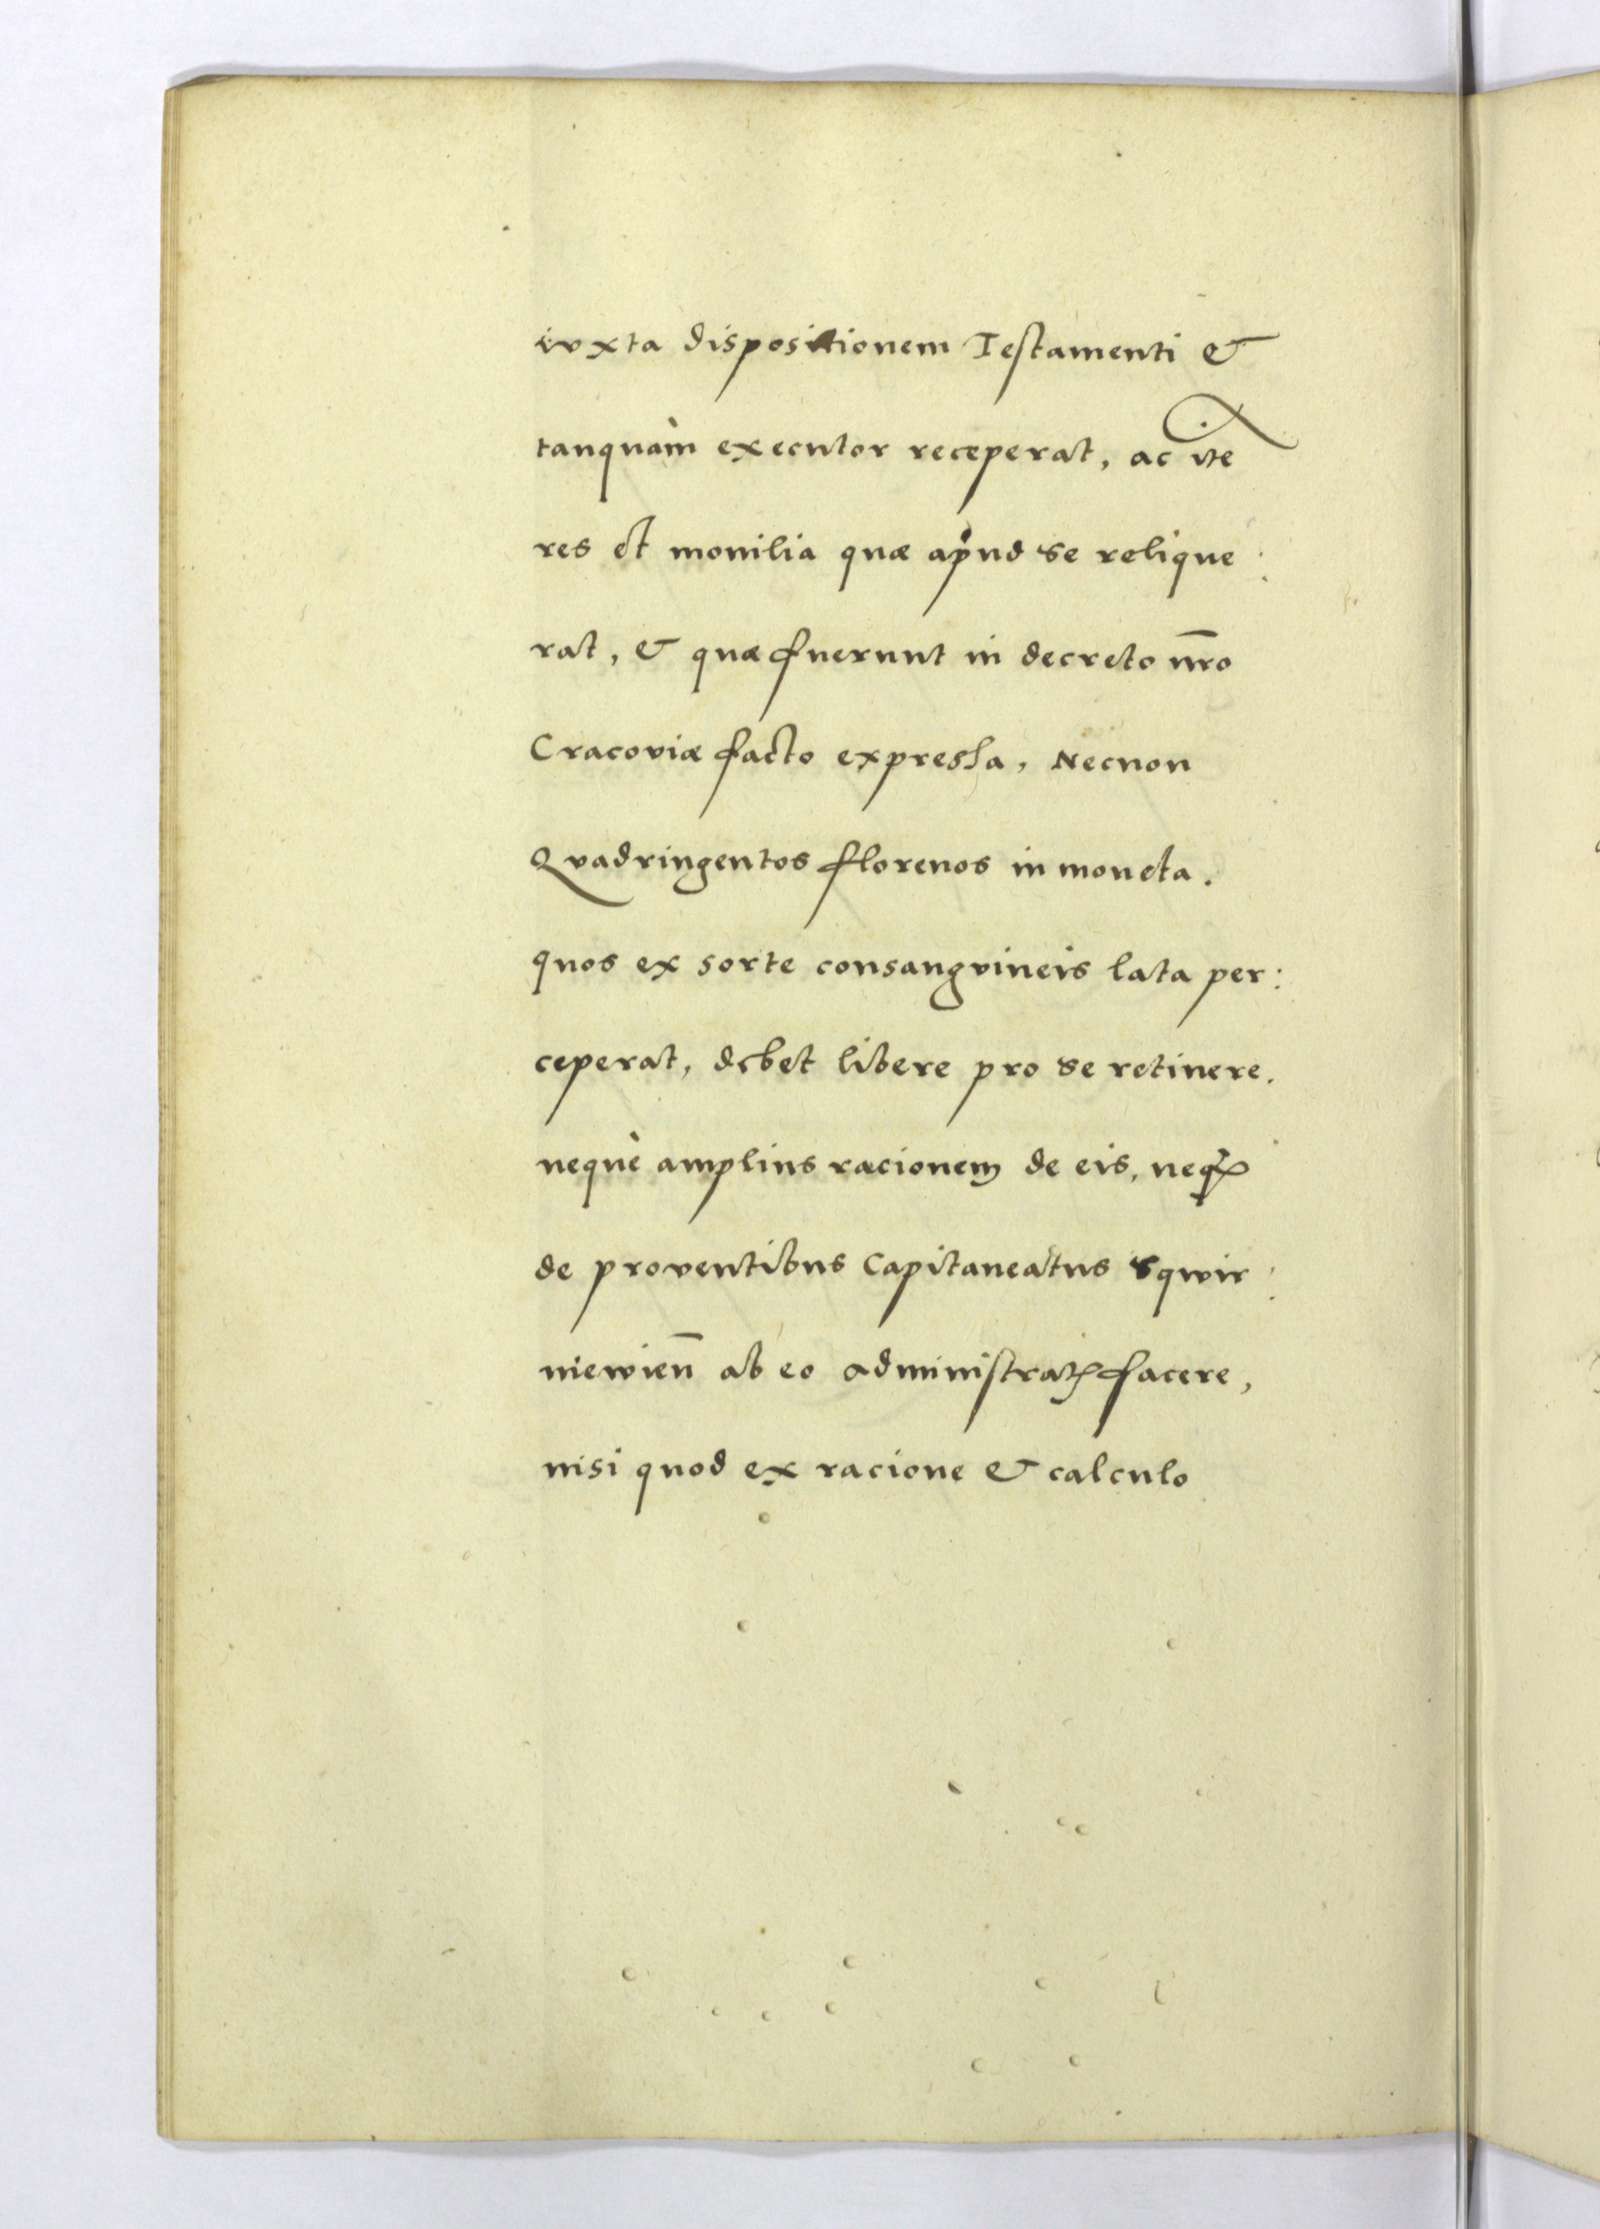 iuxta dispositionem Testamenti &
tanquàm executor receperat, ac ite
res et monilia quæ apud se relique:
rat, & quæ fuerunt in decreto nr̄o
Cracoviæ facto expressa, Necnon
Quadringentos florenos in moneta.
quos ex sorte consangvineis lata per:
ceperat, debet libere pro se retinere.
nequè amplius racionem de eis, neqꝫ
de proventibus Capitaneatus Sqwir:
niewien̄ ab eo administratꝭ facere,
nisi quod ex racione & calculo